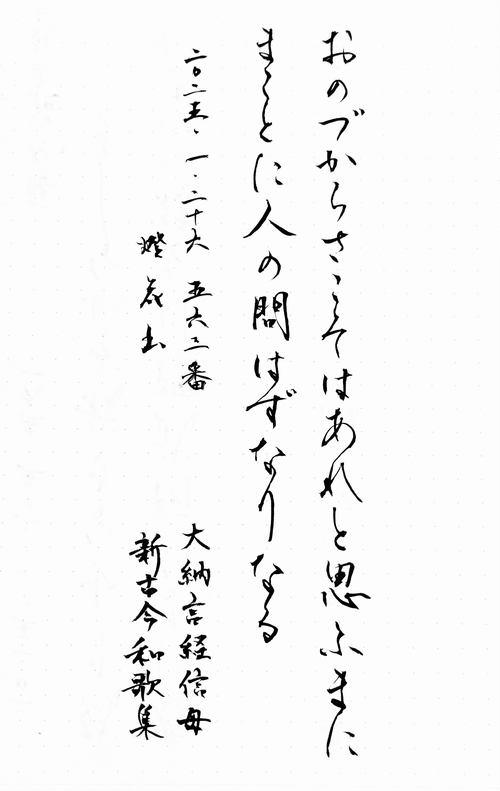 おのづからさこそはあれと思ふまに
まことに人の問はずなりなる
二〇二五、一、二十六 五六二番
大納言経信母
燈
新古今和歌集